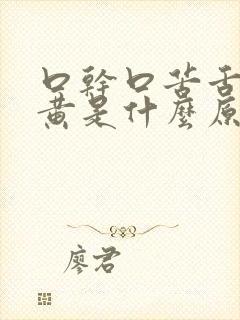 口幹口苦舌
黃是什麼原
廖君